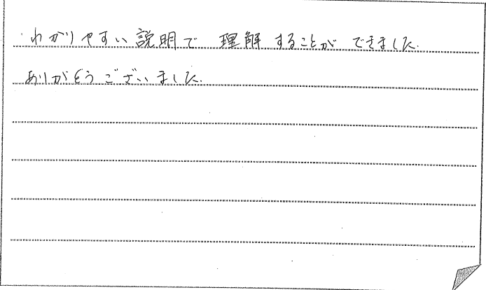 ・わかりやすい説明で 理解することができました。
ありがとうございました。